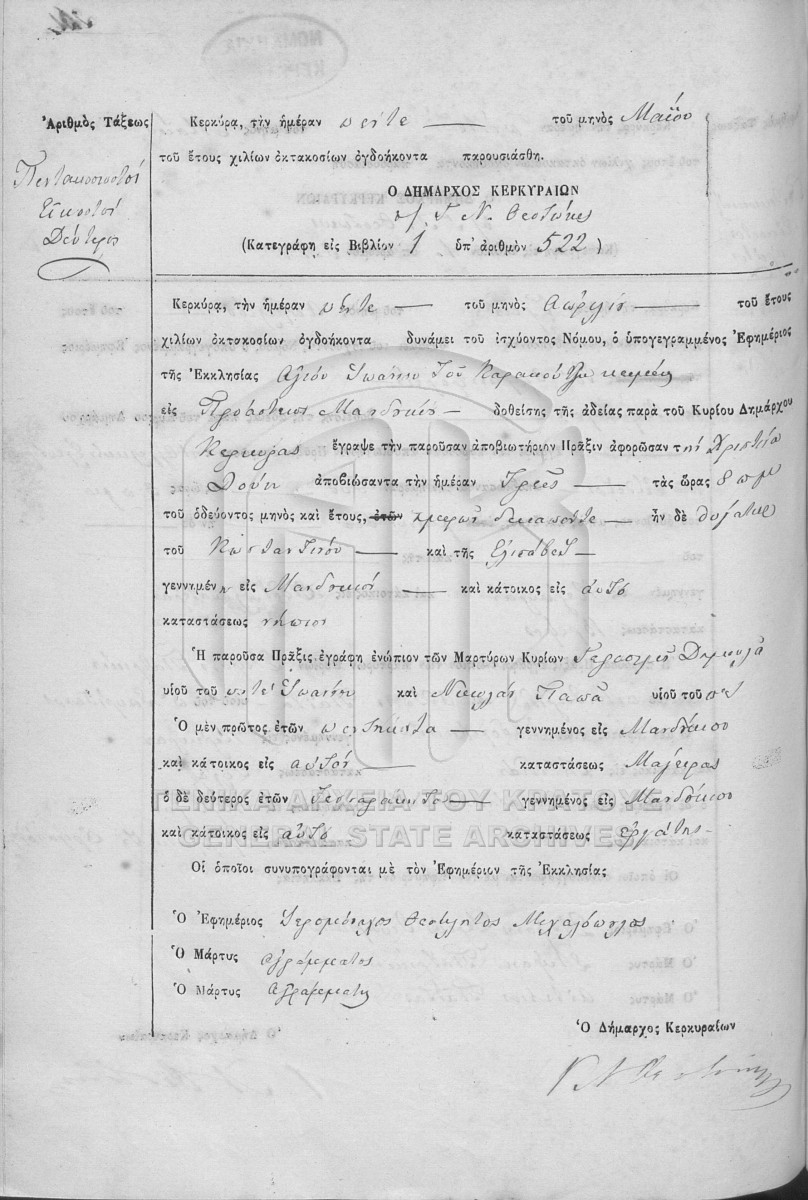 Ἀριθμὸς Τάξεως
Πεντακοσιοστοί
Εἰκοστοί
Δεύτερος
Κερκύρα, τὴν ἡμέραν πέντε τοῦ μηνὸς Μαΐου
τοῦ ἔτους χιλίων ὀκτακοσίων ὀγδοήκοντα παρουσιάσθη.
Ὁ ΔΗΜΑΡΧΟΣ ΚΕΡΚΥΡΑΙΩΝ
Γ. Ν. Θεοτόκης
(Κατεγράφη εἰς Βιβλίον 1 ὑπ' ἀριθμὸν 522)
Κερκύρα, τὴν ἡμέραν πέντε τοῦ μηνὸς Ἀπρίλιον τοῦ ἔτους
χιλίων ὀκτακοσίων ὀγδοήκοντα δυνάμει τοῦ ἰσχύοντος Νόμου, ὁ ὑπογεγραμμένος Ἐφημέριος
τῆς Ἐκκλησίας Ἁγίου Ἰωάννου τοῦ
εἰς Προάστειον Μανδουκίου δοθείσης τῆς ἀδείας παρὰ τοῦ Κυρίου Δημάρχου
Κερκύρας ἔγραψε τὴν παροῦσαν ἀποβιωτήριον Πρᾶξιν ἀφορῶσαν τὴν
ἀποβιώσαντα τὴν ἡμέραν Τρεῖς τὰς ὥρας 8 π μ
τοῦ ὁδεύοντος μηνὸς καὶ ἔτους, ἐτῶν ἡμερῶν δεκαπέντε ἦν δὲ θυγάτηρ
τοῦ Κωσταντίνου καὶ τῆς Ἐλισάβετ
γεννημένη εἰς Μανδουκίον καὶ κάτοικος εἰς αὐτό
καταστάσεως νήπιον
Ἡ παροῦσα Πρᾶξις ἐγράφη ἐνώπιον τῶν Μαρτύρων Κυρίων Γεράσιμος Δημουλᾶ
υἱοῦ τοῦ ποτέ Ἰωάννου καὶ Νικολάου Παπᾶ υἱοῦ τοῦ ποτ
Ὁ μὲν πρῶτος ἐτῶν πενῆντα γεννημένος εἰς Μανδούκιον
καὶ κάτοικος εἰς αὐτόν καταστάσεως Μάγειρας
ὁ δὲ δεύτερος ἐτῶν γεννημένος εἰς Μανδούκιον
καὶ κάτοικος εἰς αὐτό καταστάσεως ἐργάτης
Οἱ ὁποῖοι συνυπογράφονται μὲ τὸν Ἐφημέριον τῆς Ἐκκλησίας
Ὁ Ἐφημέριος Ἱερομόναχος Θεόκλητος Μιχαλόπουλος
Ὁ Μάρτυς ἀγράμματος
Ὁ Μάρτυς ἀγράμματος
Ὁ Δήμαρχος Κερκυραίων
Γ Ν Θεοτόκης
ΓΕΝΙΚΑ ΑΡΧΕΙΑ ΤΟΥ ΚΡΑΤΟΥΣ
GENERAL STATE ARCHIVES